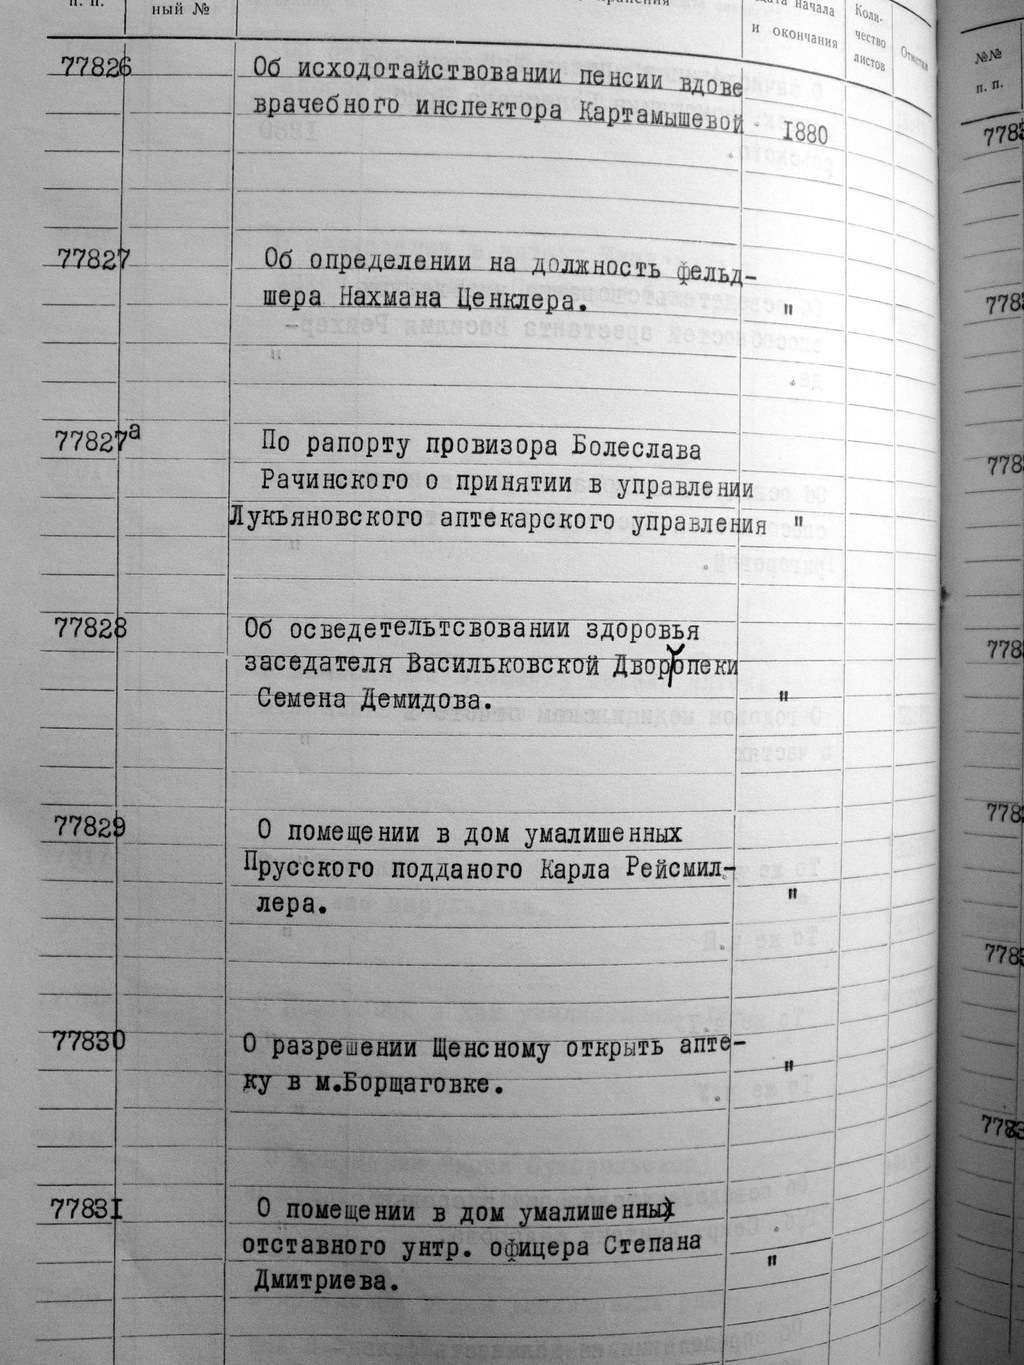 п. п.
ный №
Дата начала
и окончания
Коли-
чество
листов
Отметки
77826 Об исходотайствовании пенсии вдове
врачебного инспектора Картамышевой 1880
77827 Об определении на должность фельд-
шера Нахмана Ценклера. "
77827а По рапорту провизора Болеслава
Рачинского о принятии в управлении
Лукьяновского аптекарского управления "
77828 Об осведетельтсвовании здоровья
заседателя Васильковской Дворопеки
Семена Демидова. "
77829 О помещении в дом умалишенных
Прусского подданого Карла Рейсмил-
лера. "
77830 О разрешении Щенсному открыть апте-
ку в м.Борщаговке. "
77831 О помещении в дом умалишенных
отставного унтр. офицера Степана
Дмитриева. "
№№
п. п.